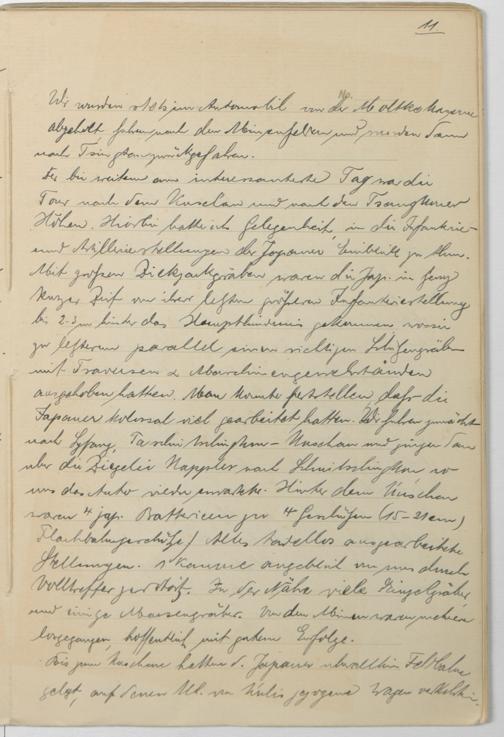 11
Wir wurden stets im Automobil von der No. Moltke Kaserne
abgeholt, fuhren nach den Minenfeldern und wurden dann
nach Tsingtau zurückgefahren.
Der bei weitem am interessanteste Tag war die
Tour nach dem Kuschan und nach den Tsangkauer
Höhen. Hierbei hatte ich Gelegenheit, in die Infanterie-
und Artilleriestellungen der Japaner Einblick zu tun.
Mit großen Zickzackgräben waren die Jap. in ganz
kurzer Zeit von ihrer letzten größeren Infanteriestellung
bis 2-3 m hinter das Haupthindernis gekommen, wo sie
zu letzterem parallel einen richtigen Schützengraben
mit Traversen &
ausgehoben hatten. Man konnte feststellen, daß die
Japaner kolossal viel gearbeitet hatten. Wir fuhren zunächst
nach Syfang, - Kuschan und gingen dann
über die Ziegelei Kappler nach wo
uns das Auto wieder erwartete. Hinter dem Kuschan
waren 4 jap. Batterieen zu 4 Geschützen (15-21cm)
Flachbahngeschütze) Alles tadellos ausgearbeitete
Stellungen. 1 Kanone angeblich von uns durch
Volltreffer zerstört. In der Nähe viele Einzelgräber,
und einige Massengräber. Von den Minen waren mehrere
losgegangen, hoffentlich mit gutem Erfolge.
Bis zum Kuschan hatten d. Japaner überall hin Feldbahn
gelegt, auf denen von Kulis gezogene Wagen